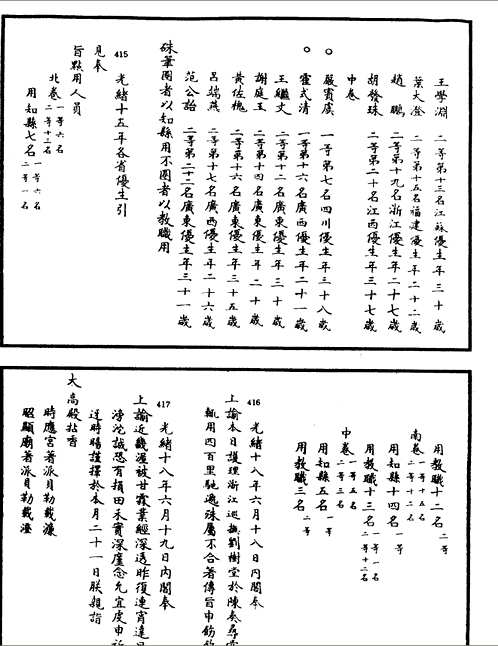 王學淵 二等第十三名江蘇優生年三十歲
葉大澄 二等第十五名福建優生年二十二歲
趙鵬 二等第十九名浙江優生年二十七歲
胡發珠 二等第二十名江西優生年三十七歲
中卷
○ 嚴賓虞 一等第七名四川優生年三十八歲
○ 霍式清 一等第十六名廣西優生年二十一歲
王繼文 二等第十二名廣東優生年三十歲
謝庭玉 二等第十四名廣東優生年二十歲
黃佐槐 二等第十六名廣東優生年三十五歲
呂端燕 二等第十七名廣西優生年二十六歲
范公詒 二等第二十二名廣東優生年三十一歲
硃筆圈者以知縣用不圈者以教職用
415 光緒十五年各省優生引
見奉
旨點用人員
北卷 一等六名 二等十三名
用知縣七名 一等六名 二等一名
用教職十二名 二等
南卷 一等十五名 二等十二名
用知縣十四名 一等
用教職十三名 一等一名 二等十二名
中卷 一等五名 二等三名
用知縣五名 一等
用教職三名 二等
416 光緒十八年六月十八日內閣奉
上諭本日護理浙江巡撫劉樹堂於陳奏尋常
輒用四百里馳遞殊屬不合著傳旨申飭
417 光緒十八年六月十九日內閣奉
上諭近畿渥被甘霖業經深透昨復連宵達旦
滂沱誠恐有損田禾實深廑念允宜虔申祈
迓時暘謹擇於本月二十一日朕親詣
大高殿拈香
時應宮著派貝勒載濂
昭顯廟著派貝勒載澄